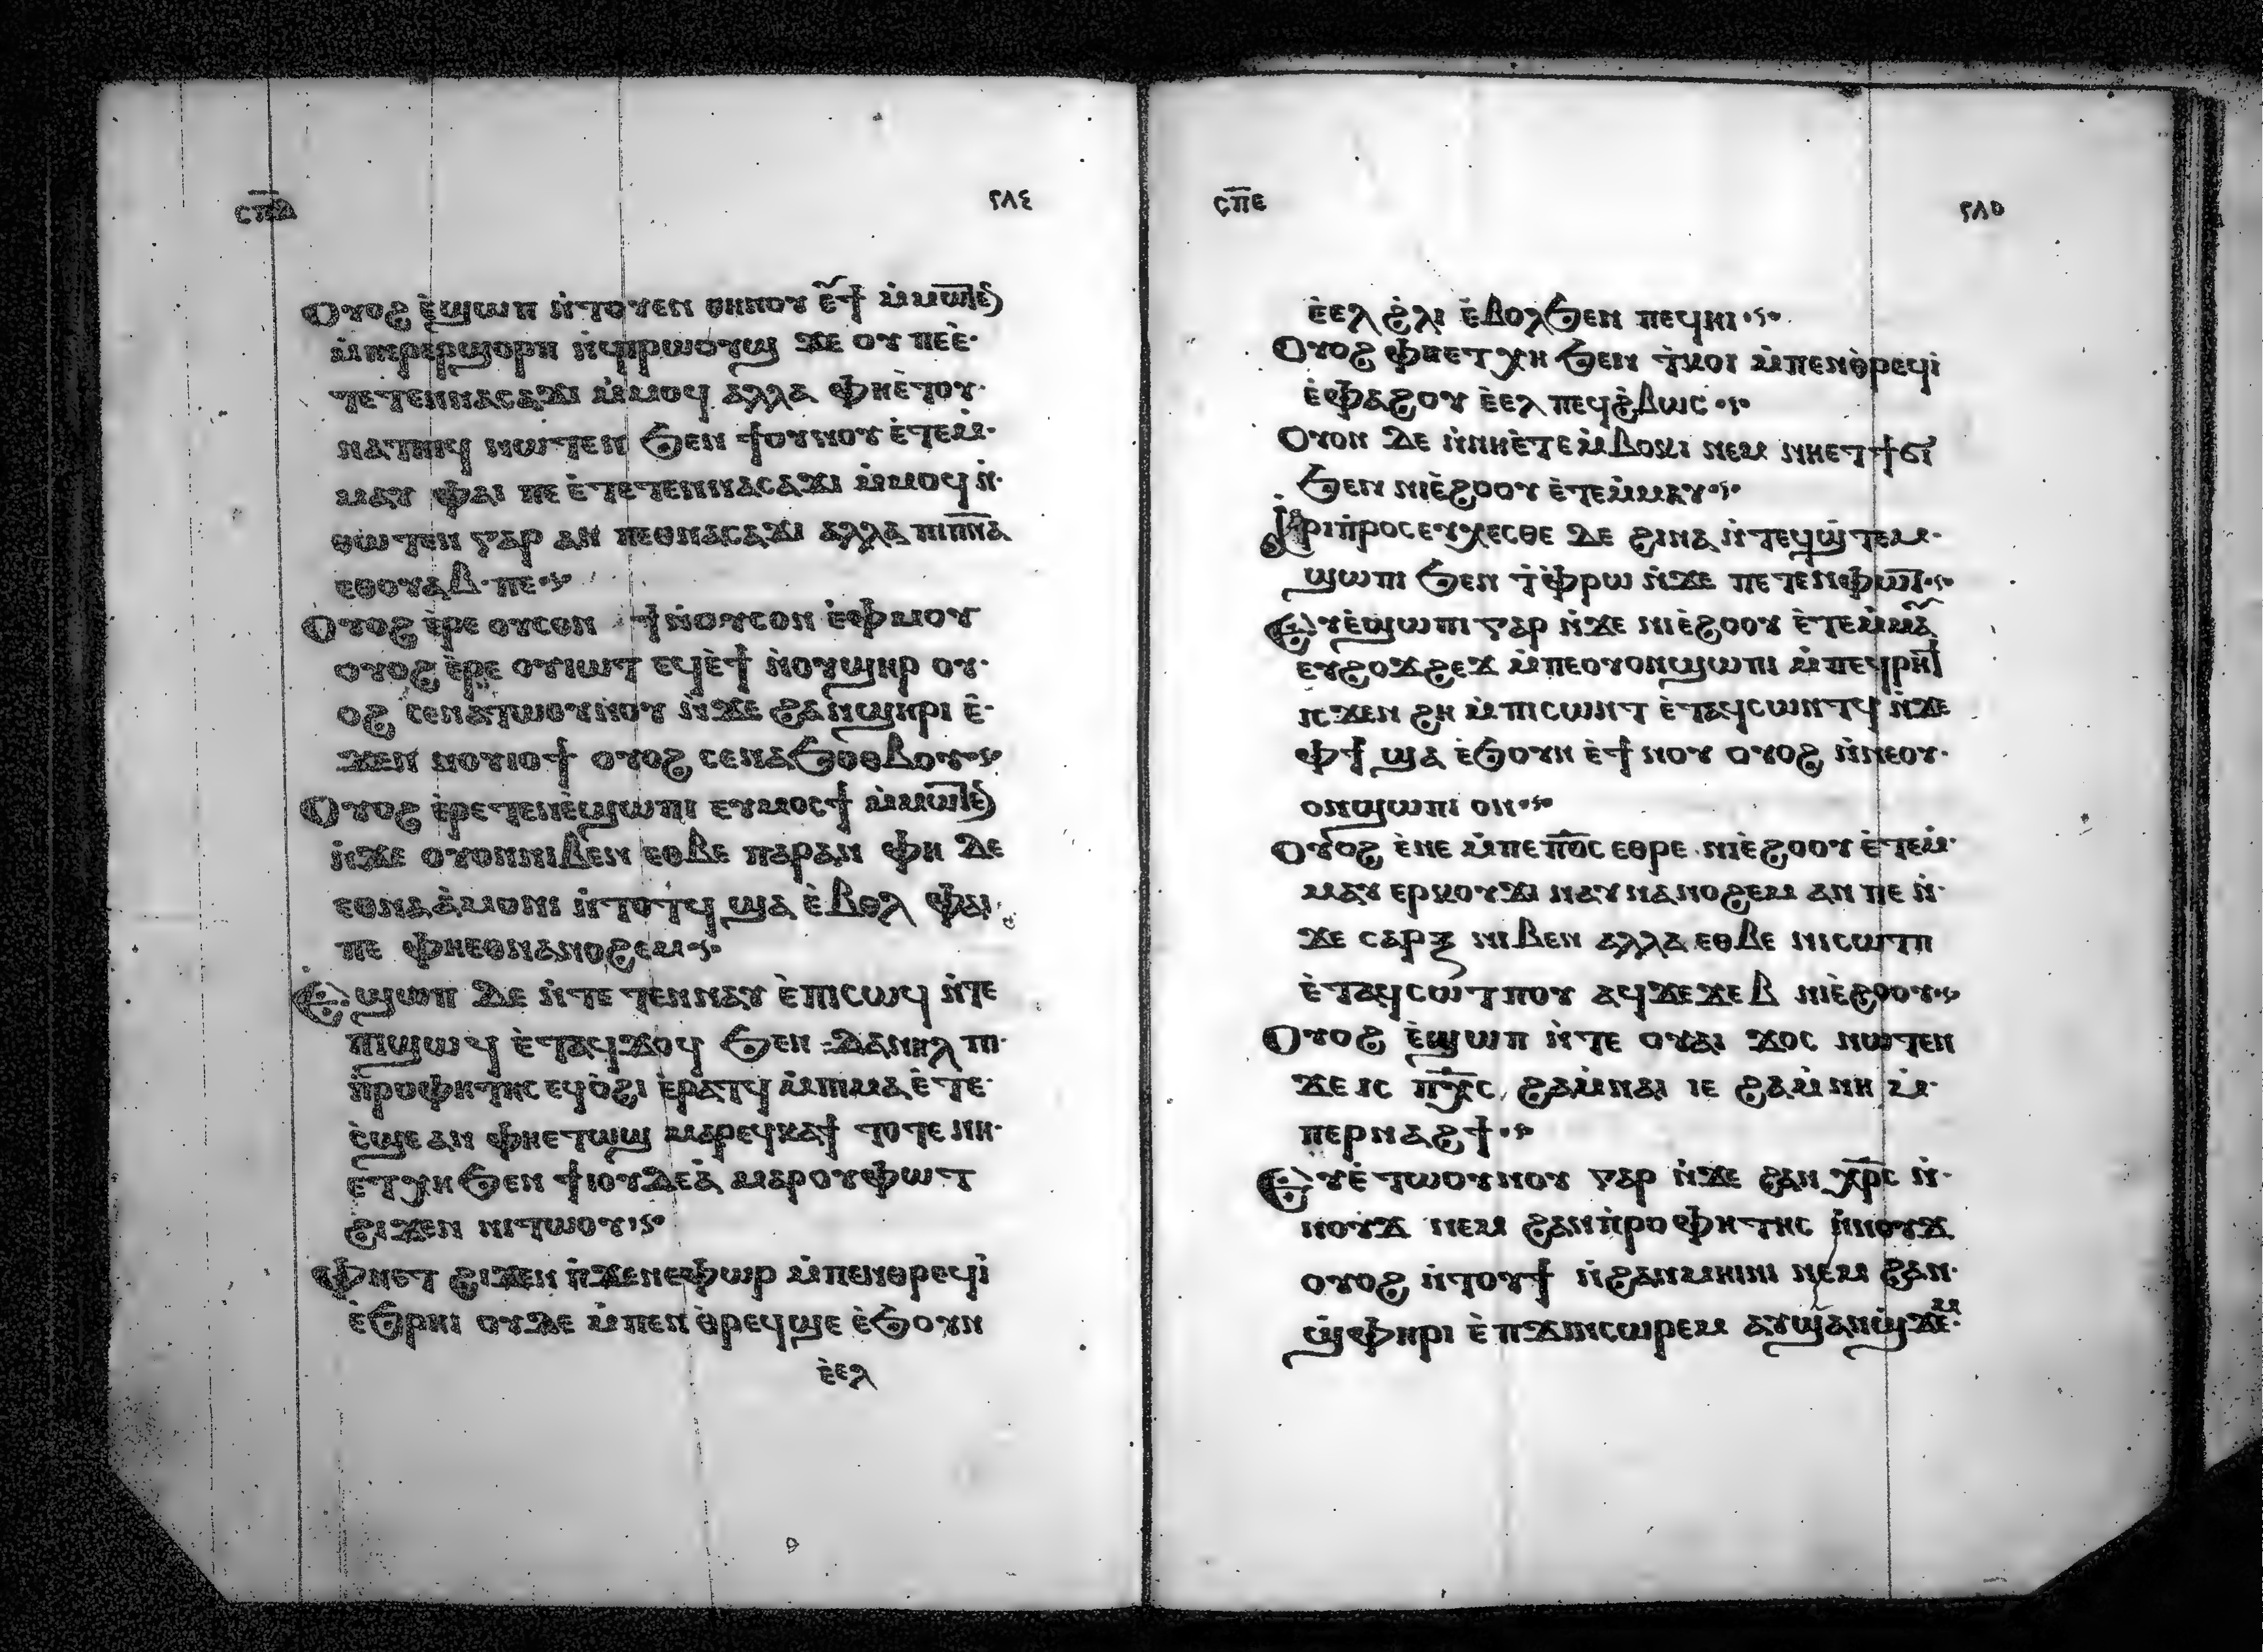 ⲥⲡ̅ⲇ ٢٨٤
Ⲟⲩⲟϩ ⲉ̀ϣⲱⲡ ⲛ̀ⲧⲟⲩⲉⲛ ⲑⲏⲛⲟⲩ ⲉ̀ϯ ⲙ̀ⲙⲱⲧⲉ̅ⲛ
ⲙ̀ⲡⲉⲣⲉⲣϣⲟⲣⲡ ⲛ̀ϥⲓⲣⲱⲟⲩϣ ϫⲉ ⲟⲩ ⲡⲉⲉ̀·
ⲧⲉⲧⲉⲛⲛⲁⲥⲁϫⲓ ⲙ̀ⲙⲟϥ ⲁⲗⲗⲁ ⲫⲏⲉ̀ⲧⲟⲩ·
ⲛⲁⲧⲏⲓϥ ⲛⲱⲧⲉⲛ ϧⲉⲛ ϯⲟⲩⲛⲟⲩ ⲉ̀ⲧⲉⲙ̀·
ⲙⲁⲩ ⲫⲁⲓ ⲡⲉ ⲉ̀ⲧⲉⲧⲉⲛⲛⲁⲥⲁϫⲓ ⲙ̀ⲙⲟϥ ⲛ̀·
ⲑⲱⲧⲉⲛ ⲅⲁⲣ ⲁⲛ ⲡⲉⲑⲛⲁⲥⲁϫⲓ ⲁⲗⲗⲁ ⲡⲓⲡ̅ⲛ̅ⲁ
ⲉⲑⲟⲩⲁⲃ·ⲡⲉ
Ⲟⲩⲟϩ ⲉ̀ⲣⲉ ⲟⲩⲥⲟⲛ ϯ ⲛ̀ⲟⲩⲥⲟⲛ ⲉ̀ⲫⲙⲟⲩ
ⲟⲩⲟϩ ⲉ̀ⲣⲉ ⲟⲩⲓⲱⲧ ⲉϥⲉ̀ϯ ⲛ̀ⲟⲩϣⲏⲣ ⲟⲩ·
ⲟϩ ⲥⲉⲛⲁⲧⲱⲟⲩⲛⲟⲩ ⲛ̀ϫⲉ ϩⲁⲛϣⲏⲣⲓ ⲉ̀·
ϫⲉⲛ ⲛⲟⲩⲓⲟϯ ⲟⲩⲟϩ ⲥⲉⲛⲁϧⲟⲑⲃⲟⲩ
Ⲟⲩⲟϩ ⲉ̀ⲣⲉⲧⲉⲛⲉ̀ϣⲱⲡⲓ ⲉⲩⲙⲟⲥϯ ⲙ̀ⲙⲱⲧⲉ̅ⲛ
ⲛ̀ϫⲉ ⲟⲩⲟⲛⲛⲓⲃⲉⲛ ⲉⲑⲃⲉ ⲡⲁⲣⲁⲛ ⲫⲏ ⲇⲉ
ⲉⲑⲛⲁⲁ̀ⲙⲟⲛⲓ ⲛ̀ⲧⲟⲧϥ ϣⲁ ⲉ̀ⲃⲟⲗ ⲫⲁⲓ
ⲡⲉ ⲫⲏⲉⲑⲛⲁⲛⲟϩⲉⲙ
Ⲉϣⲱⲡ ⲇⲉ ⲛ̀ⲧⲉ ⲧⲉⲛⲛⲁⲩ ⲉ̀ⲡⲓⲥⲱϥ ⲛ̀ⲧⲉ
ⲡⲓϣⲱϥ ⲉ̀ⲧⲁϥϫⲟϥ ϧⲉⲛ ⲇⲁⲛⲓⲏⲗ ⲡⲓ·
ⲡ̀ⲣⲟⲫⲏⲧⲏⲥ ⲉϥⲟ̀ϩⲓ ⲉ̀ⲣⲁⲧϥ ⲙ̀ⲡⲓⲙⲁ ⲉ̀ⲧⲉ·
ⲥ̀ϣⲉ ⲁⲛ ⲫⲏⲉⲧⲱϣ ⲙⲁⲣⲉϥⲕⲁϯ ⲧⲟⲧⲉ ⲛⲏ·
ⲉⲧⲭⲏ ϧⲉⲛ ϯⲓⲟⲩⲇⲉⲁ̀ ⲙⲁⲣⲟⲩⲫⲱⲧ
ϩⲓϫⲉⲛ ⲛⲓⲧⲱⲟⲩ
Ⲫⲏⲉⲧ ϩⲓϫⲉⲛ ⲡ̀ϫⲉⲛⲉⲫⲱⲣ ⲙ̀ⲡⲉⲛⲑⲣⲉϥⲓ̀
ⲉ̀ϧⲣⲏⲓ ⲟⲩⲇⲉ ⲙ̀ⲡⲉⲛⲑ̀ⲣⲉϥϣⲉ ⲉ̀ϧⲟⲩⲛ
ⲉ̀ⲉⲗ
ⲥⲡ̅ⲉ ٢٨٥
ⲉ̀ⲉⲗ ϩ̀ⲗⲓ ⲉ̀ⲃⲟⲗϧⲉⲛ ⲡⲉϥⲏⲓ
Ⲟⲩⲟϩ ⲫⲏⲉⲧⲭⲏ ϧⲉⲛ ⲧ̀ⲕⲟⲓ ⲙ̀ⲡⲉⲛⲑ̀ⲣⲉϥⲓ̀
ⲉ̀ⲫⲁϩⲟⲩ ⲉ̀ⲉⲗ ⲡⲉϥϩ̀ⲃⲱⲥ
Ⲟⲩⲟⲛ ⲇⲉ ⲛ̀ⲛⲏⲉ̀ⲧⲉⲙ̀ⲃⲟⲕⲓ ⲛⲉⲙ ⲛⲏⲉⲧϯϭⲓ
ϧⲉⲛ ⲛⲓⲉ̀ϩⲟⲟⲩ ⲉ̀ⲧⲉⲙ̀ⲙⲁⲩ
Ⲁⲣⲓⲡ̀ⲣⲟⲥⲉⲩⲭⲉⲥⲑⲉ ⲇⲉ ϩⲓⲛⲁ ⲛ̀ⲧⲉϥϣ̀ⲧⲉⲙ·
ϣⲱⲡⲓ ϧⲉⲛ ⲧ̀ⲫ̀ⲣⲱ ⲛ̀ϫⲉ ⲡⲉⲧⲉⲛⲫⲱⲧ
Ⲉⲩⲉ̀ϣⲱⲡⲓ ⲅⲁⲣ ⲛ̀ϫⲉ ⲛⲓⲉ̀ϩⲟⲟⲩ ⲉ̀ⲧⲉⲙ̀ⲙⲁⲩ
ⲉⲩϩⲟϫϩⲉϫ ⲙ̀ⲡⲉⲟⲩⲟⲛϣⲱⲡⲓ ⲙ̀ⲡⲉϥⲣⲏϯ
ⲓⲥϫⲉⲛ ϩⲏ ⲙ̀ⲡⲓⲥⲱⲛⲧ ⲉ̀ⲧⲁϥⲥⲱⲛⲧϥ ⲛ̀ϫⲉ
ⲫϯ ϣⲁ ⲉ̀ϧⲟⲩⲛ ⲉ̀ϯⲛⲟⲩ ⲟⲩⲟϩ ⲛ̀ⲛⲉⲟⲩ·
ⲟⲛϣⲱⲡⲓ ⲟⲛ
Ⲟⲩⲟϩ ⲉ̀ⲛⲉ ⲙ̀ⲡⲉ ⲡ̅ⲟ̅ⲥ ⲉⲑⲣⲉ ⲛⲓⲉ̀ϩⲟⲟⲩ ⲉ̀ⲧⲉⲙ̀·
ⲙⲁⲩ ⲉⲣⲕⲟⲩϫⲓ ⲛⲁⲩⲛⲁⲛⲟϩⲉⲙ ⲁⲛ ⲡⲉ ⲛ̀·
ϫⲉ ⲥⲁⲣⲝ ⲛⲓⲃⲉⲛ ⲁⲗⲗⲁ ⲉⲑⲃⲉ ⲛⲓⲥⲱⲧⲡ
ⲉ̀ⲧⲁϥⲥⲟⲧⲡⲟⲩ ⲁϥϫⲉϫⲉⲃ ⲛⲓⲉ̀ϩⲟⲟⲩ
Ⲟⲩⲟϩ ⲉ̀ϣⲱⲡ ⲛ̀ⲧⲉ ⲟⲩⲁⲓ ϫⲟⲥ ⲛⲱⲧⲉⲛ
ϫⲉ ⲓⲥ ⲡ̅ⲭ̅ⲥ ϩⲁⲙ̀ⲛⲁⲓ ⲓⲉ ϩⲁⲙ̀ⲛⲏ ⲙ̀·
ⲡⲉⲣⲛⲁϩϯ
Ⲉⲩⲉ̀ⲧⲱⲟⲩⲛⲟⲩ ⲅⲁⲣ ⲛ̀ϫⲉ ϩⲁⲛ ⲭ̅ⲣ̅ⲥ ⲛ̀·
ⲛⲟⲩϫ ⲛⲉⲙ ϩⲁⲛⲡ̀ⲣⲟⲫⲏⲧⲏⲥ ⲛ̀ⲛⲟⲩϫ
ⲟⲩⲟϩ ⲛ̀ⲧⲟⲩϯ ⲛ̀ϩⲁⲛⲙⲏⲓⲛⲓ ⲛⲉⲙ ϩⲁⲛ·
ϣ̀ⲫⲏⲣⲓ ⲉ̀ⲡϫⲓⲛⲥⲱⲣⲉⲙ ⲁⲩϣⲁⲛϣ̀ϫⲉⲙ·